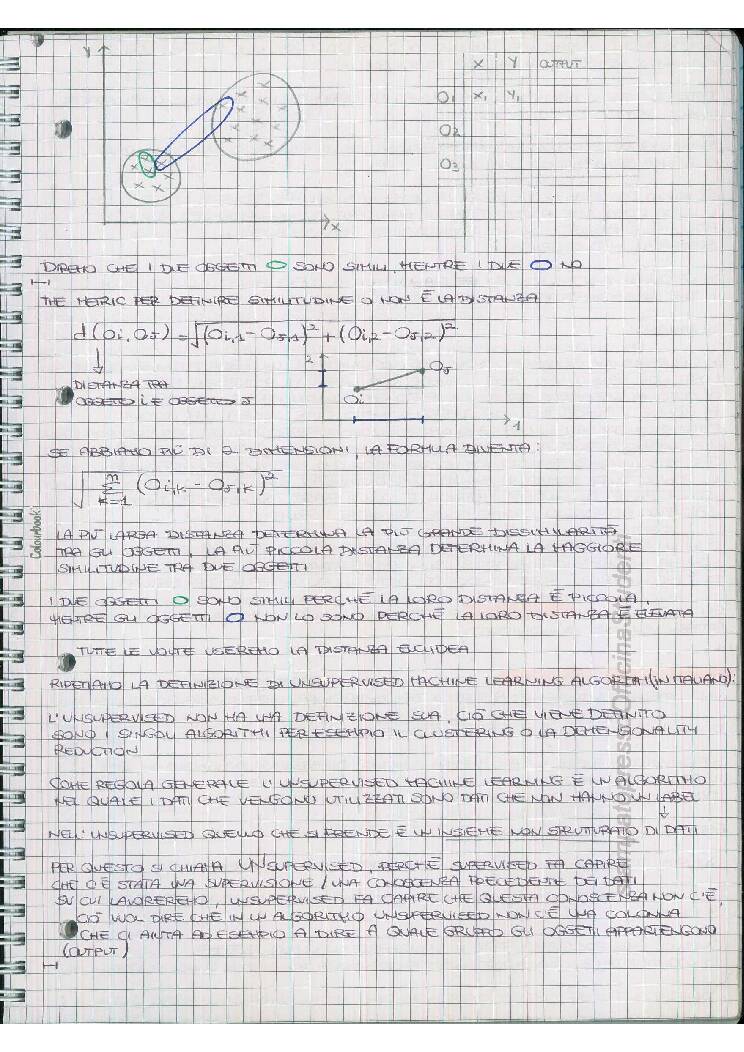 Y
X
X Y OUTPUT
O1 X1 Y1
O2
O3
DIREMO CHE I DUE OGGETTI SONO SIMILI, MENTRE I DUE NO
THE METRIC PER DEFINIRE SIMILITUDINE O NON È LA DISTANZA
d(Oi, OJ) = √(Oi,1 - OJ,1)² + (Oi,2 - OJ,2)²
DISTANZA TRA
OGGETTO i E OGGETTO J
2
OJ
Oi
1
SE ABBIAMO PIÙ DI 2 DIMENSIONI, LA FORMULA DIVENTA:
√ n Σ K=1 (Oi,K - OJ,K)²
LA PIÙ LARGA DISTANZA DETERMINA LA PIÙ GRANDE DISSIMILARITÀ
TRA GLI OGGETTI, LA PIÙ PICCOLA DISTANZA DETERMINA LA MAGGIORE
SIMILITUDINE TRA DUE OGGETTI
I DUE OGGETTI SONO SIMILI PERCHÉ LA LORO DISTANZA È PICCOLA,
MENTRE GLI OGGETTI NON LO SONO PERCHÉ LA LORO DISTANZA È ELEVATA
TUTTE LE VOLTE USEREMO LA DISTANZA EUCLIDEA
RIPETIAMO LA DEFINIZIONE DI UNSUPERVISED MACHINE LEARNING (IN ITALIANO):
L'UNSUPERVISED NON HA UNA DEFINIZIONE SUA, CIÒ CHE VIENE DEFINITO
SONO I SINGOLI ALGORITMI PER ESEMPIO IL CLUSTERING O LA DIMENSIONALITY
REDUCTION
COME REGOLA GENERALE L'UNSUPERVISED MACHINE LEARNING È UN ALGORITMO
NEL QUALE I DATI CHE VENGONO UTILIZZATI SONO DATI CHE NON HANNO UN LABEL
NELL'UNSUPERVISED QUELLO CHE SI PRENDE È UN INSIEME NON STRUTTURATO DI DATI
PER QUESTO SI CHIAMA UNSUPERVISED, PERCHÉ SUPERVISED FA CAPIRE
CHE C'È STATA UNA SUPERVISIONE / UNA CONOSCENZA PRECEDENTE DEI DATI
SU CUI LAVOREREMO, UNSUPERVISED FA CAPIRE CHE QUESTA CONOSCENZA NON C'È,
CIÒ VUOL DIRE CHE IN UN ALGORITMO UNSUPERVISED NON C'È UNA COLONNA
CHE CI AIUTA AD ESEMPIO A DIRE A QUALE GRUPPO GLI OGGETTI APPARTENGONO
(OUTPUT)
Colourbook
Stampato presso OfficinaStudenti